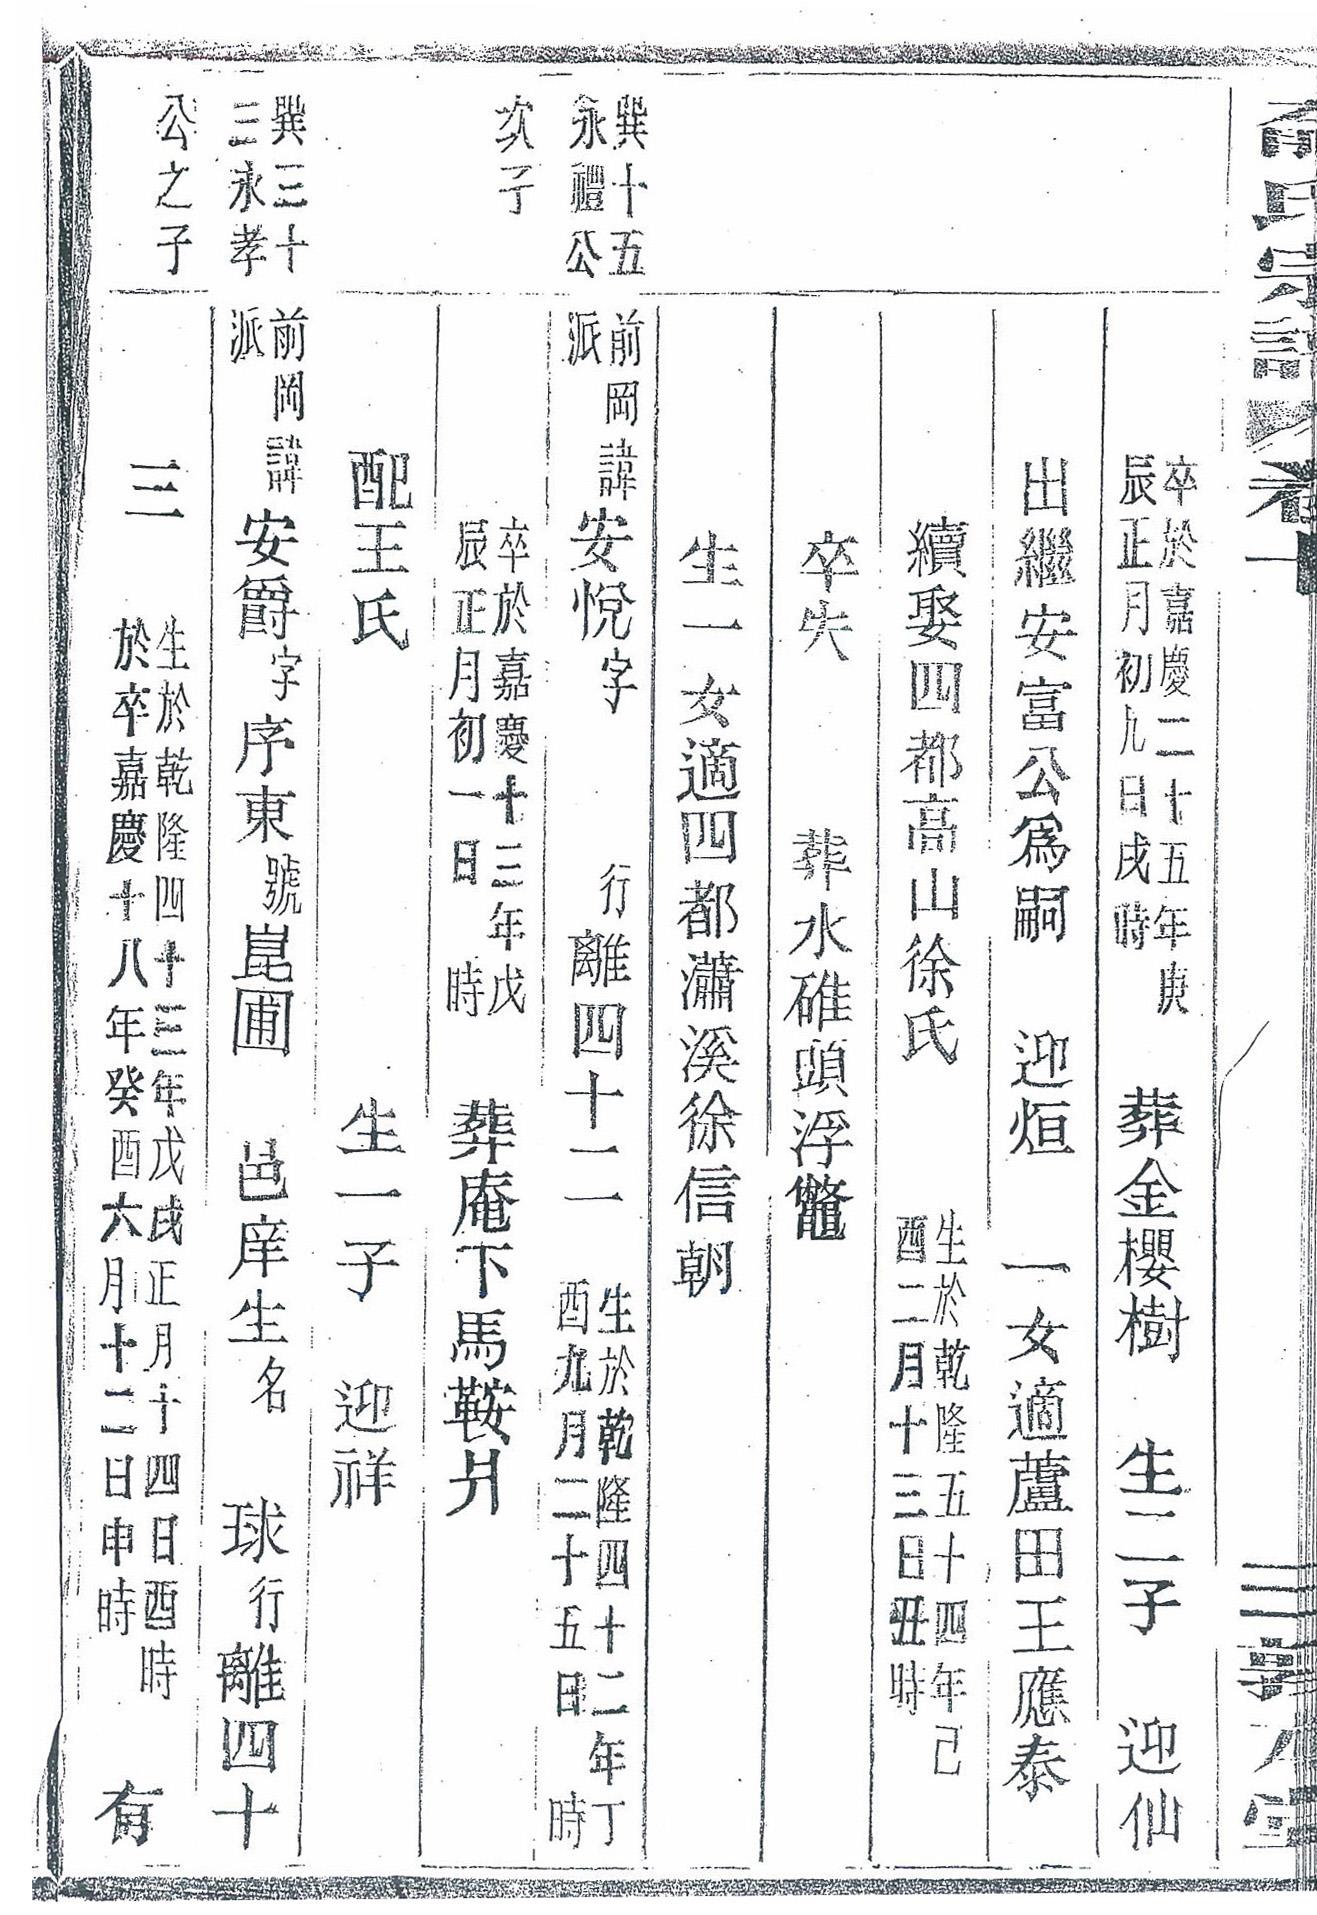 氏宗譜 卷十
卒於嘉慶二十五年庚
辰正月初九日戌時
葬金櫻樹 生二子 迎仙
出繼安富公爲嗣 迎烜 一女適蘆田王應泰
續娶四都高山徐氏
生於乾隆五十四年己
酉二月十三日丑時
卒失 葬水碓頭浮
生一女適四都瀟溪徐信朝
巽十五
永禮公
前岡
派
諱安悅字 行離四十二
生於乾隆四十二年丁
酉九月二十五日 時
次子
卒於嘉慶十三年戊
辰正月初一日 時
葬庵下馬鞍爿
配王氏 生一子 迎祥
巽三十
三永孝
前岡
派
諱安爵字序東號崑圃 邑庠生名 球行離四十
公之子
三
生於乾隆四十三年戊戌正月十四日酉時
於卒嘉慶十八年癸酉六月十二日申時
有